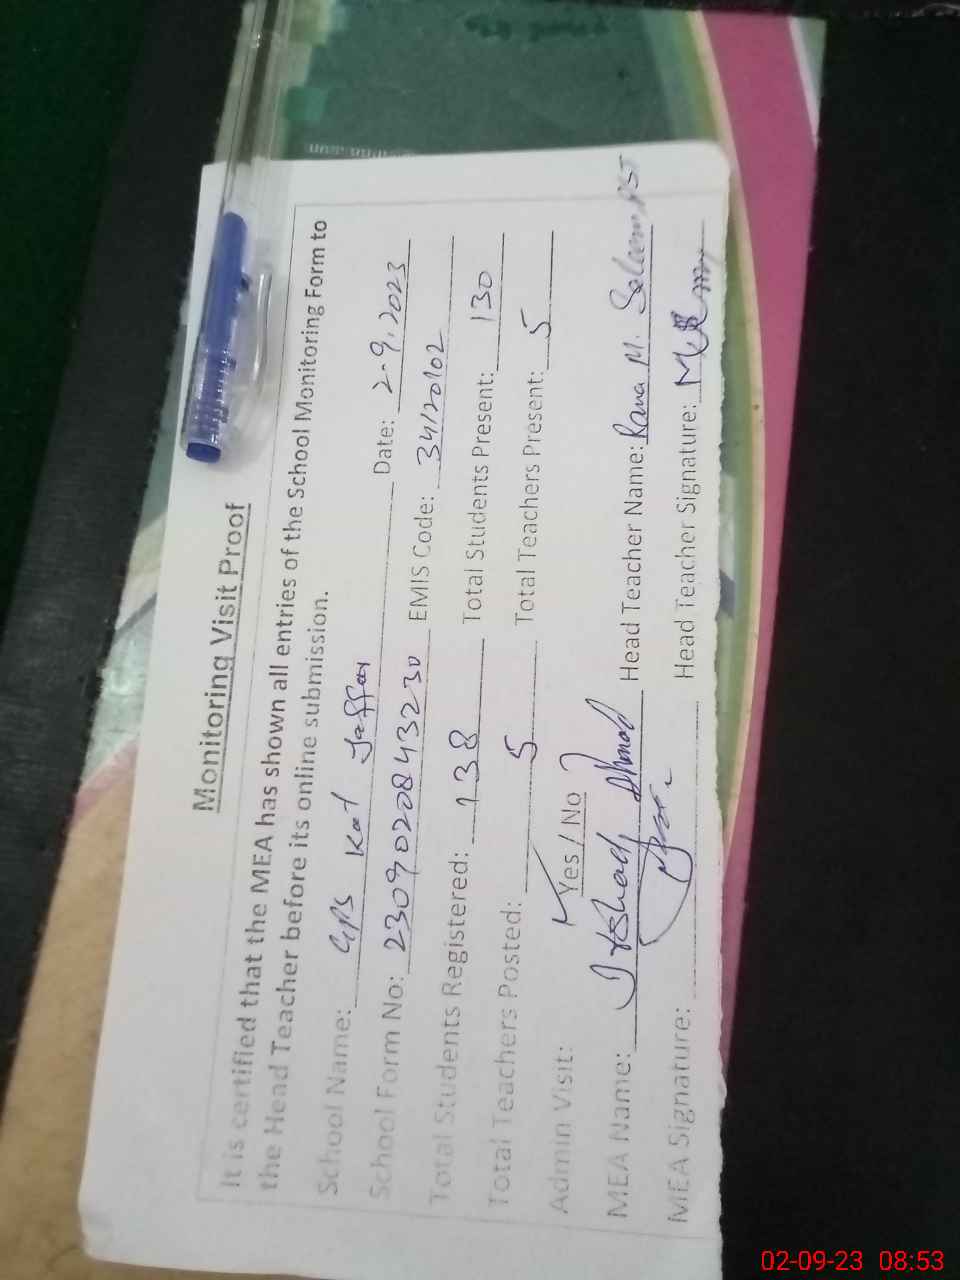 Monitoring Visit Proof
It is certified that the MEA has shown all entries of the School Monitoring Form to
the Head Teacher before its online submission.
School Name: GPS Kot Jaffar Date: 2.9.2023
School Form No: 2309020843230 EMIS Code: 34120102
Total Students Registered: 138 Total Students Present: 130
Total Teachers Posted: 5 Total Teachers Present: 5
Admin Visit: Yes / No
MEA Name: Irshad Ahmad Head Teacher Name: Rana M. Saleem PST
MEA Signature: Head Teacher Signature:
02-09-23 08:53